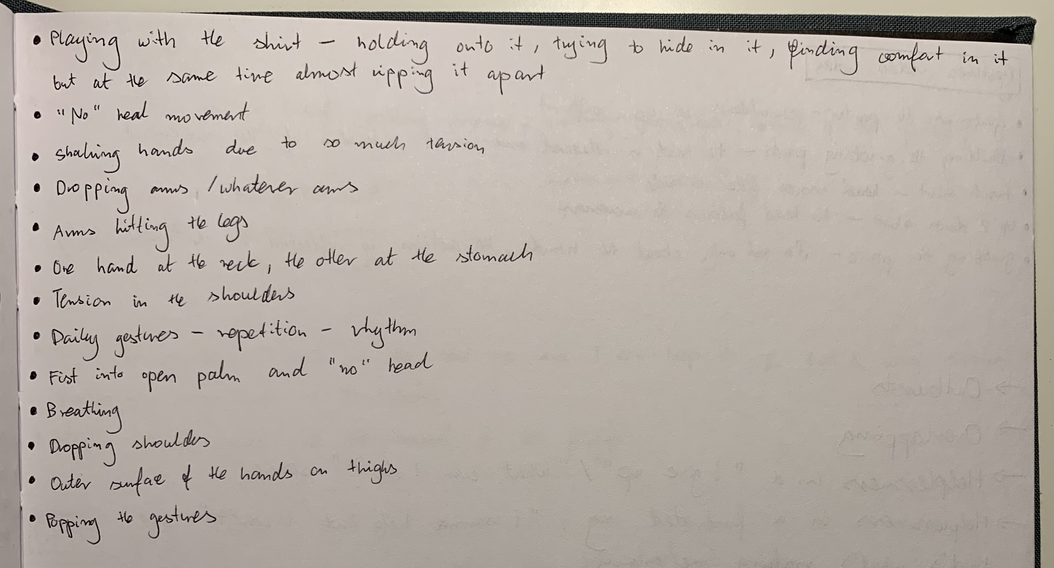 • Playing with the shirt – holding onto it, trying to hide in it, finding comfort in it
but at the same time almost ripping it apart
• "No" head movement
• Shaking hands due to so much tension
• Dropping arms / whatever arms
• Arms hitting the legs
• One hand at the neck, the other at the stomach
• Tension in the shoulders
• Daily gestures – repetition – rhythm
• Fist into open palm and "no" head
• Breathing
• Dropping shoulders
• Outer surface of the hands on thighs
• Popping the gestures